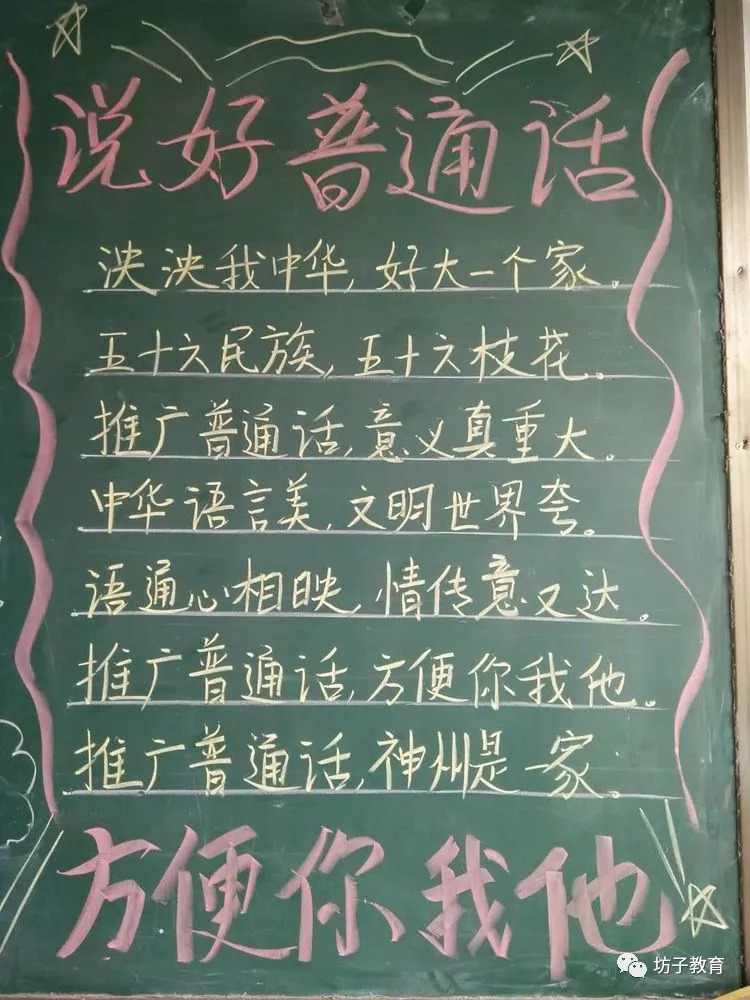 说好普通话
泱泱我中华,好大一个家。
五十六民族,五十六枝花。
推广普通话,意义真重大。
中华语言美,文明世界夸。
语通心相映,情传意又达。
推广普通话,方便你我他。
推广普通话,神州是一家。
方便你我他
坊子教育